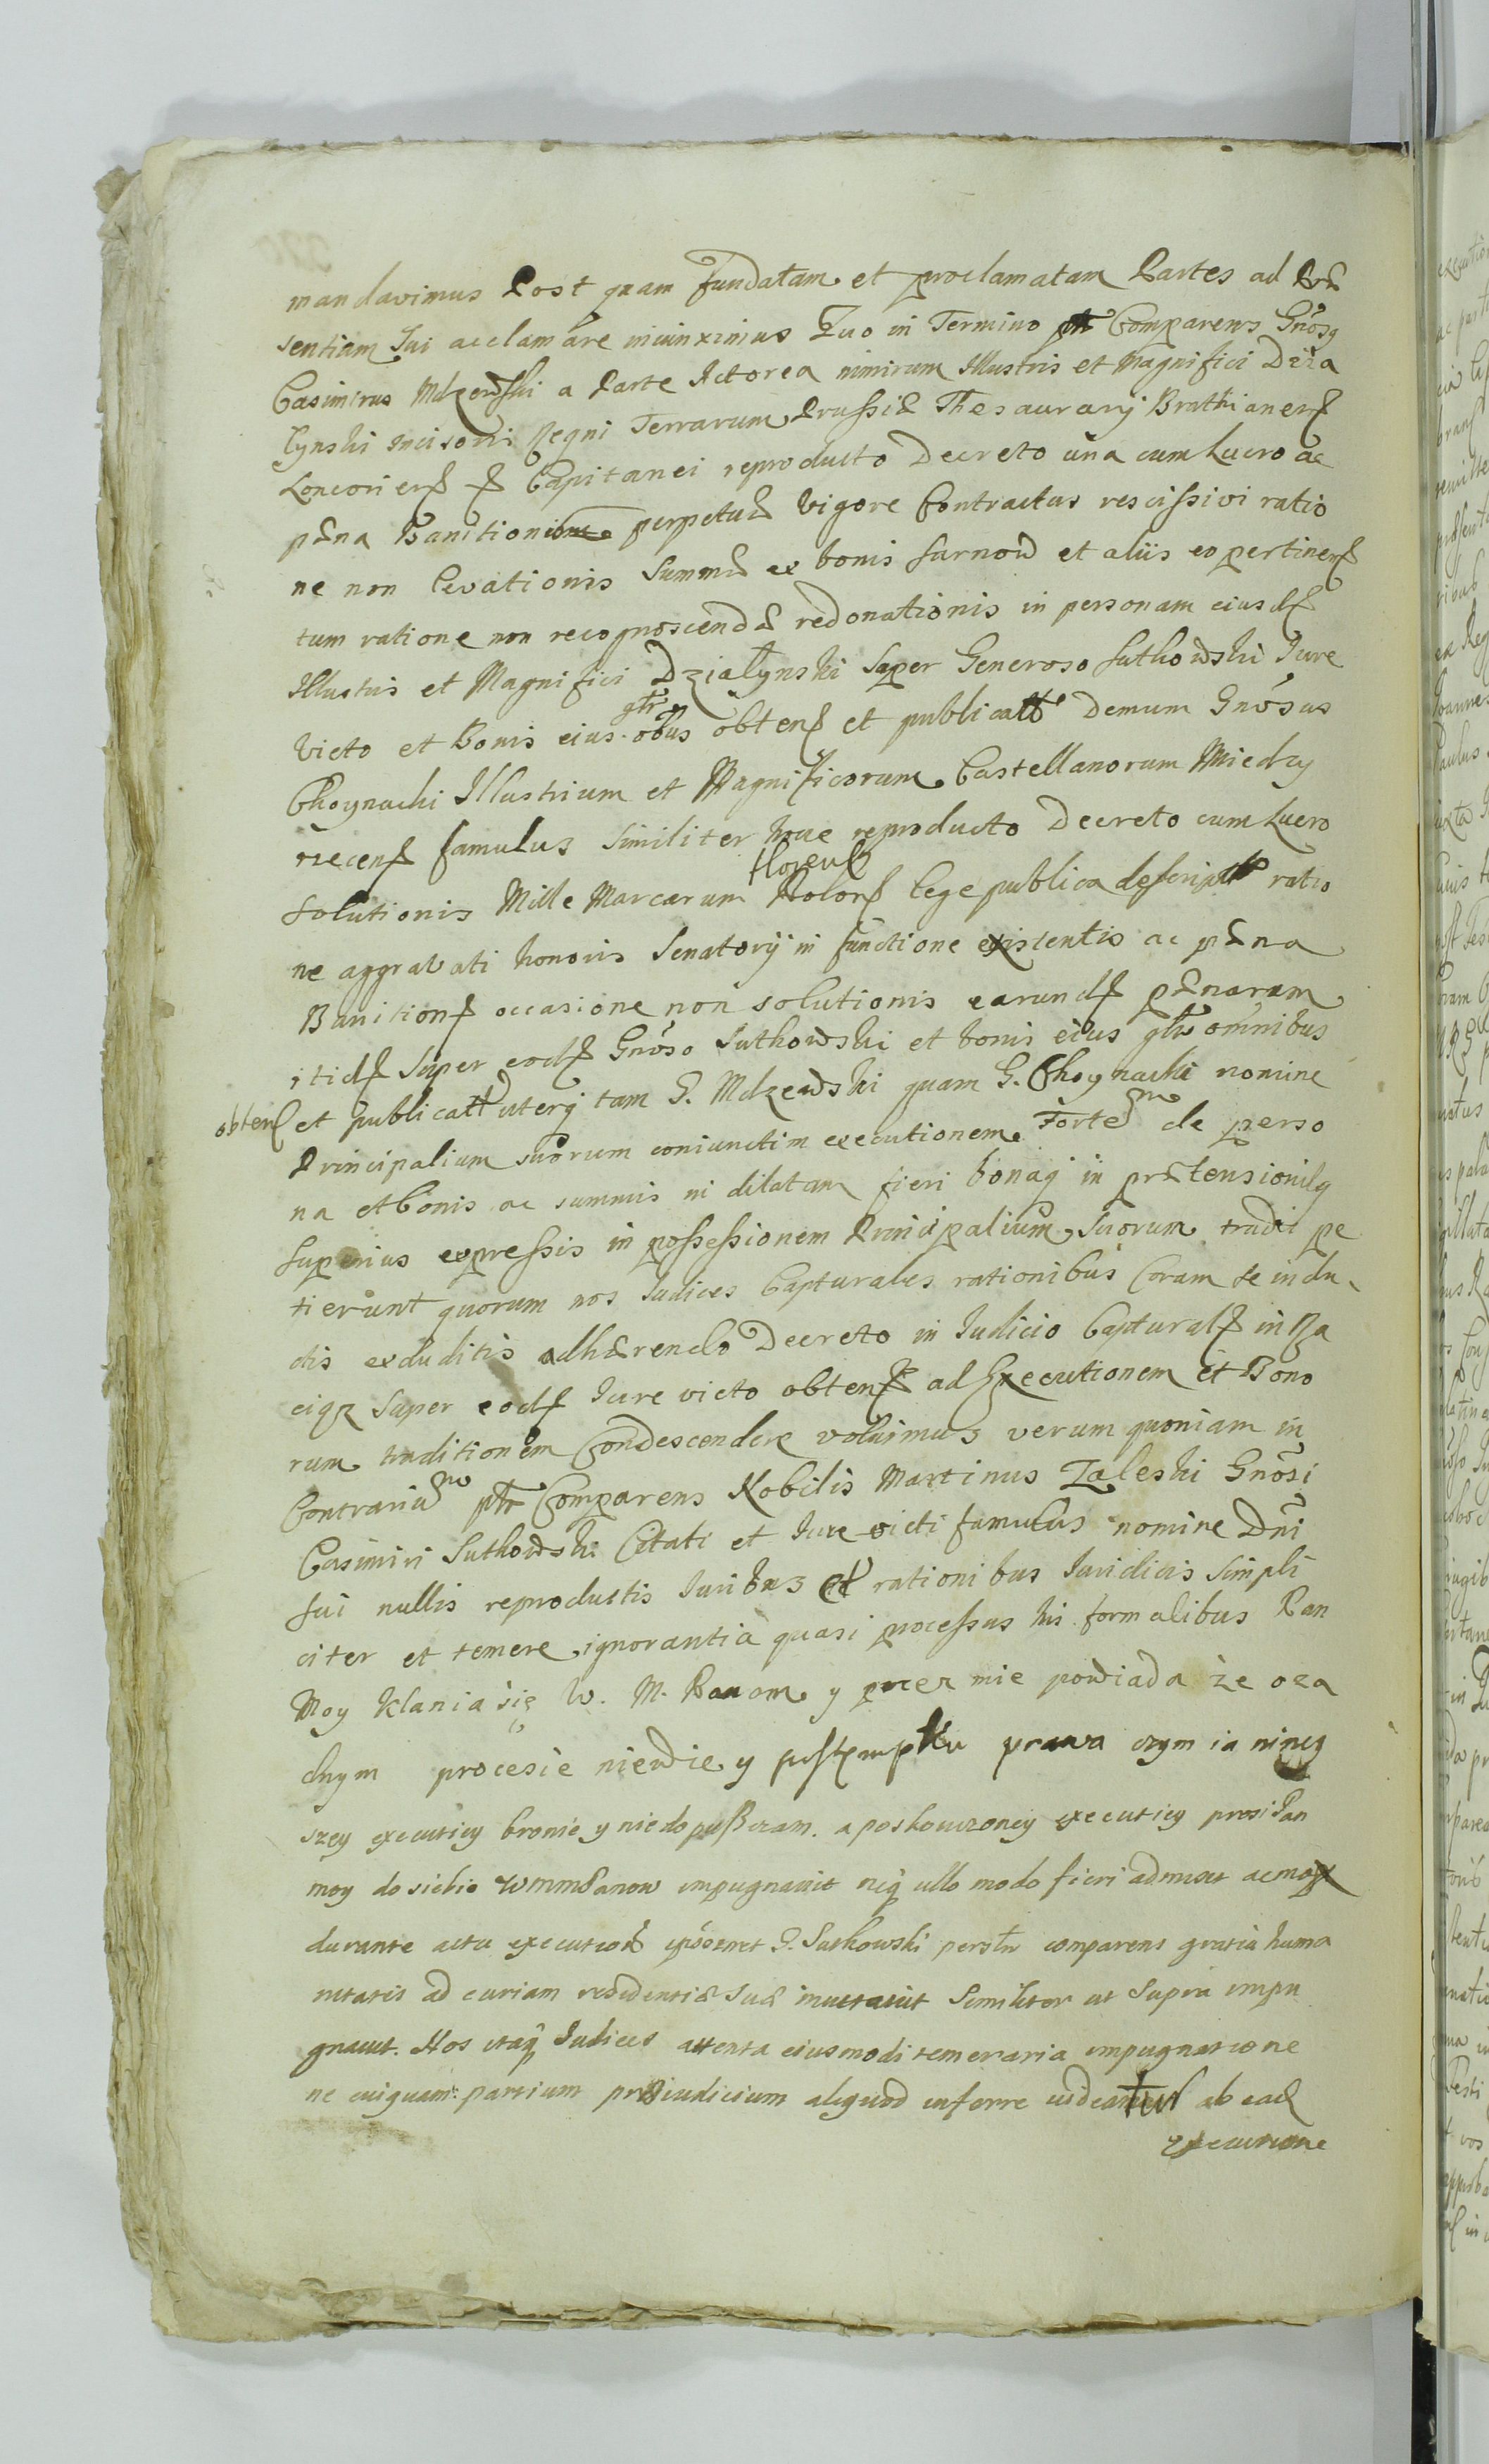 mandavimus Post quam fundatam et proclamatam Partes ad Præ
sentiam Sui acclamare iniunximus Quo in Termino ptr Comparens Gnōsq
Casimirus Mdzewski a Parte Actorea nimirum Illustris et Magnifici Dzia
lynski Incisoris Regni Terrarum Prussiæ Thesaurarij Brathianens
Loncoriens Capitanei reproducto Decreto una cum Lucro ac
pæna Banitionis perpetuæ Vigore Contractus rescissivi ratio
ne non levationis Summæ ex bonis Sarnow et aliis eo pertinens
tum ratione non recognoscendæ redonationis in personam eiusd
Illustris et Magnifici Dzialynski Super Generoso Suthowski Iure
victo et Bonis eius gtr obus obtens et publicatt Demum Gnōsus
Choynachi Illustrium et Magnificorum Castellanorum Miedzy
rzecens famulus Similiter hocce reproducto Decreto cum Lucro
Solutionis Mille Marcarum florens Polons lege publica descriptt ratio
ne aggravati honoris Senatorij in functione existentis ac pæna
Banitions occasione non solutionis earund pænarum
itid Super eod Gnōso Suthowski et bonis eius gtr omnibus
obtens et publicatt uterq tam G. Mdzewski quam G. Choynachi nomine
Principalium suorum coniunctim executionem Fortem de perso
na et bonis ac summis in dilatam fieri bonaq in prætensionibq
Superius expressis in possessionem Principalium Suorum tradi pe
tierunt quorum nos Iudices Capturales rationibus Coram se indu
ctis exauditis adhærendo Decreto in Iudicio Captural in Ra
ciqz Super eod Iure victo obtens ad Executionem et Bono
rum traditionem Condescendere voluimus verum quoniam in
Contrarium ptr Comparens Nobilis Martinus Zaleski Gnōsi
Casimiri Suthowski Citati et Iure victi famulus nomine Dni
Sui nullis reproductis Iuribus et rationibus Iuridicis Simpli
citer et temere ignorantia quasi processus his formalibus Pan
Moy Klania się W. M. Panom y przez mie powiada że oza
dnym procesie niewie y postempku prawa czym ia niney
szey executiey bronie y niedopuszczam. a poskonczoney executiey prosi Pan
moy do siebie WMMPanow impugnavit neq ullo modo fieri admisit ac mox
durante actu executionis G. Suthowski persltr comparens gratia huma
nitatis ad curiam residentiæ Suæ invitavit Similiter ut Supra impu
gnavit. Nos itaq Iudices attenta eiusmodi temeraria impugnatione
ne cuiquam partium præiudicium aliquod inferre videatur ab ead
executione